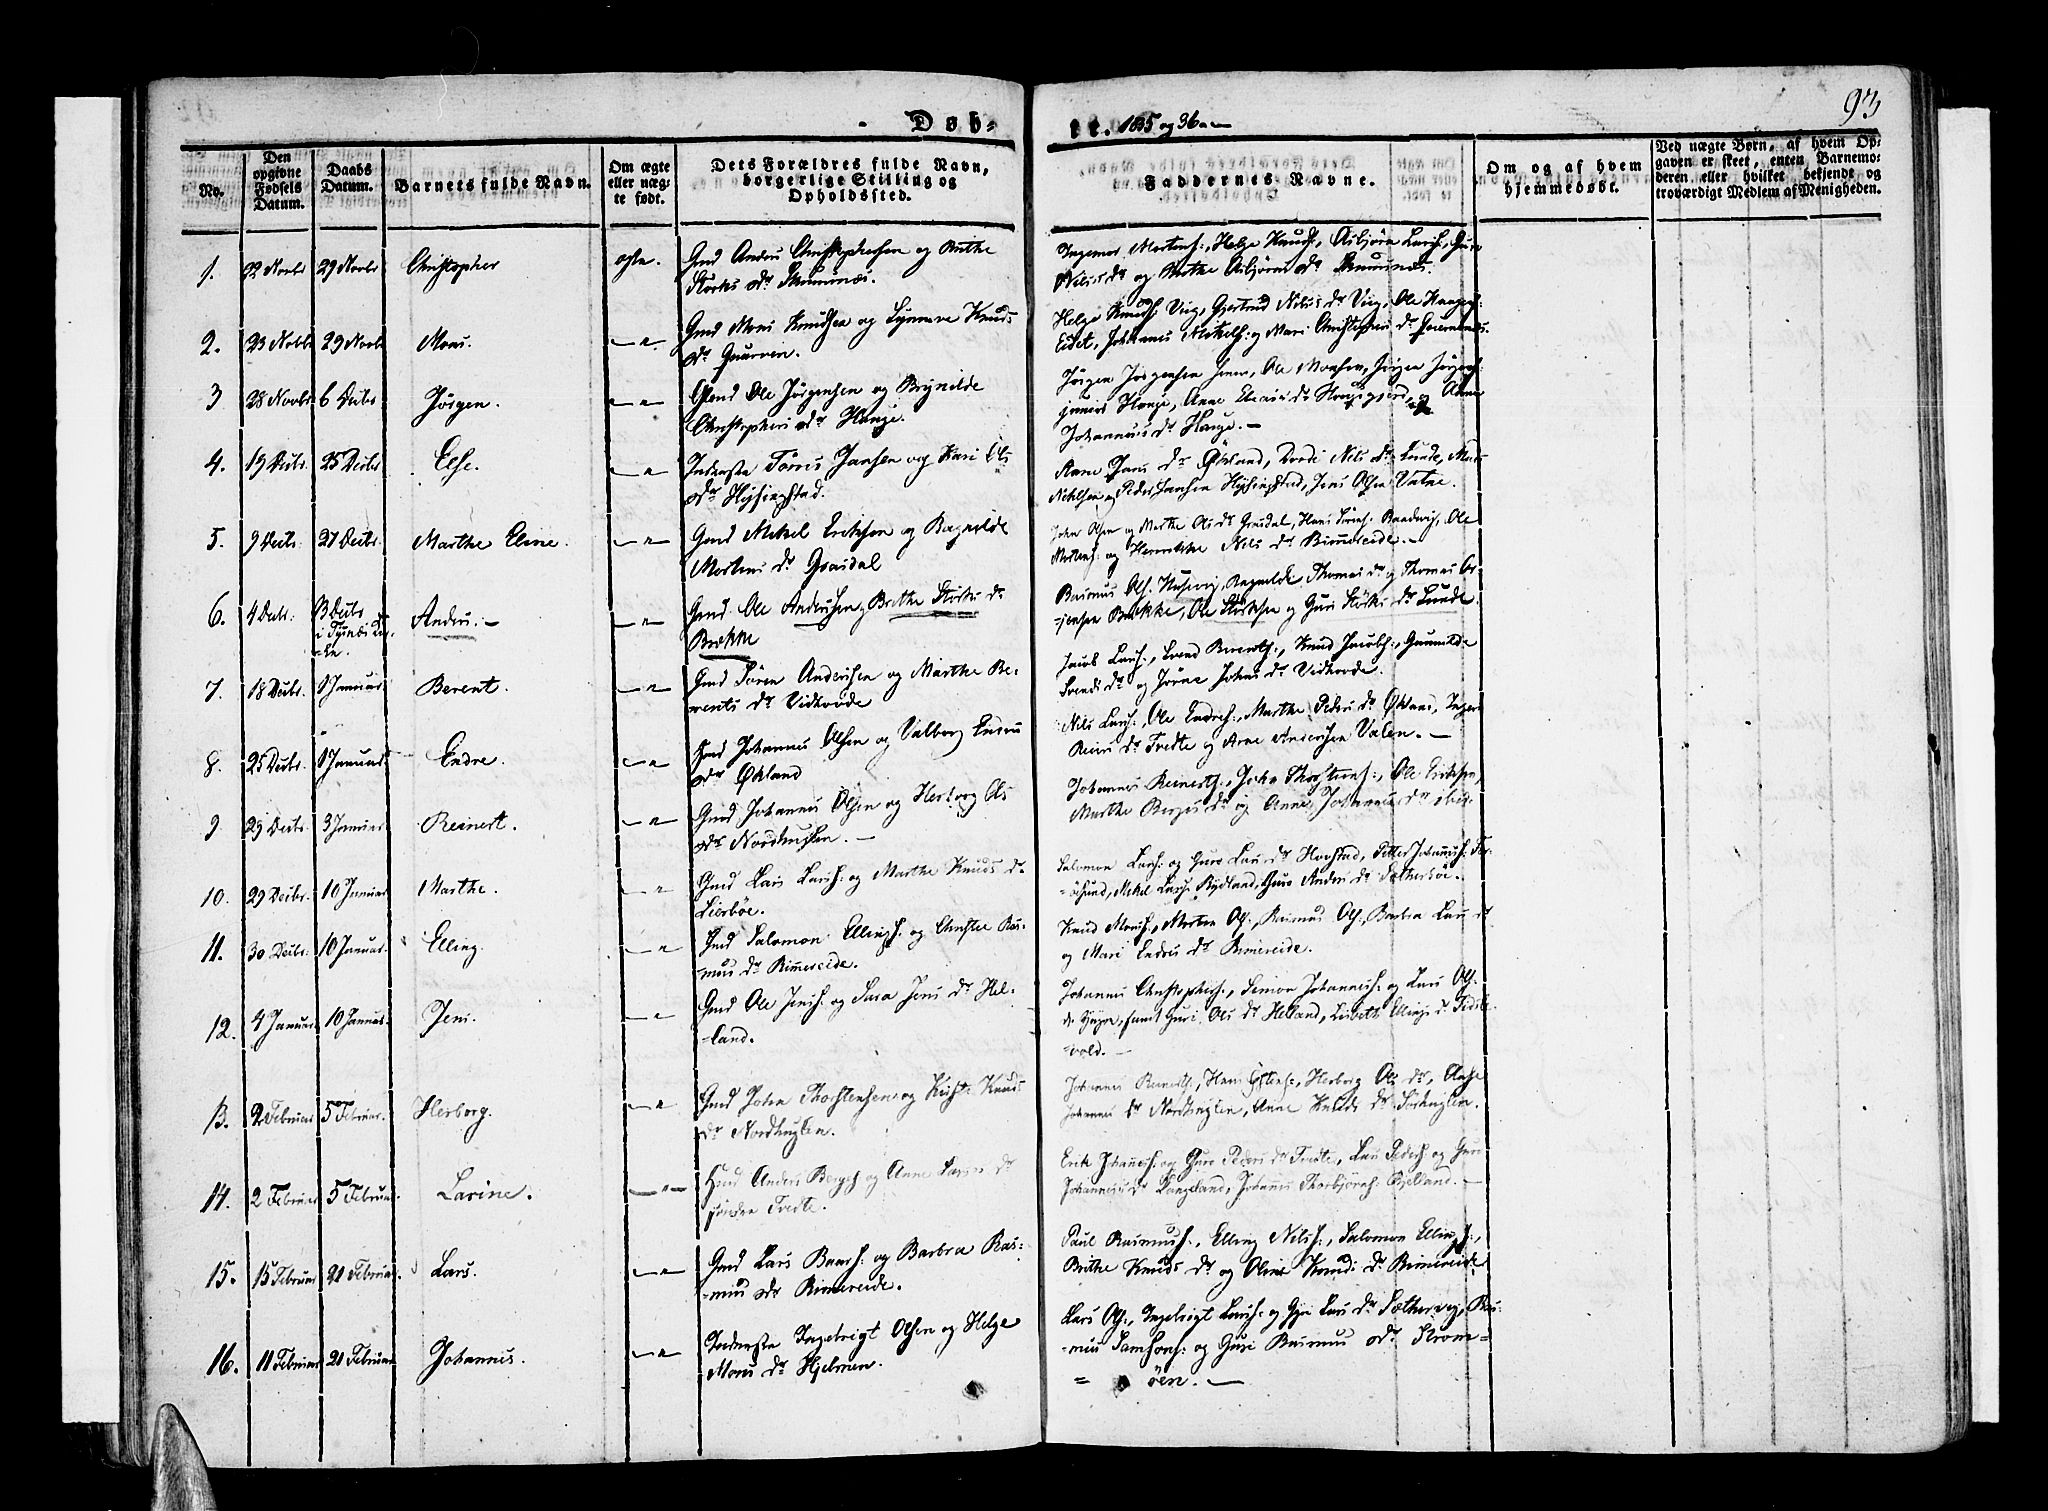 93
Døb-
te. 1835 og 36
No.
Den opgivne Fødsels Datum.
Daabs Datum.
Barnets fulde Navn.
Om ægte eller uægte født.
Dets Forældres fulde Navn, borgerlige Stilling og Opholdssted.
Faddernes Navne.
Om og af hvem hjemmedøbt.
Ved uægte Børn, af hvem Opgaven er skeet, enten Barnemoderen eller hvilket bekjendt og troværdigt Medlem af Menigheden.
1. 22 Novbr 29 Novbr Christopher ægte. Gmd Anders Christophersen og Brithe
Storks dr
Ingemor Mortens:, Helge Knuds:, Asbjørn Lars:, Guro
Nils dr og Brithe Asbjørns dr
2. 23 Novbr 29 Novbr Mons. — " — Gmd Mons Knudsen og Synneve Knuds
dr
Helge Knuds: Viig, Gjertrud Nils dr Viig, Ole
Eidet, Johannes Mikels: og Mari Christophers dr
3 28 Novbr 6 Decbr Jørgen. — " — Gmd Ole Jørgensen og Brynilde
Christophers dr Hauge.
Jørgen Jørgensen senr, Ole Monsen, Jørgen Jørgens:
junior Hauge, Anne dr og Anne
Johannes dr Hauge. —
4. 19 Decbr. 25 Decbr Else. — " — Inderste Tørres Jansen og Kari Ols
dr Høisingstad.
Jans dr Økland, Nils dr Lunde, Mons
Nikelsen og Peder Jansen Høisingstad, Jens Olsen Vatne.
5. 9 Decbr. 27 Decbr. Marthe Eline. — " — Gmd Mikel Eriksen og Ragnilde
Mortens dr Græsdal
John Olsen og Marthe Ols dr Græsdal, Hans Baadsvig, Ole
Mortens: og Henrikke Nils dr Rimmereide. —
6. 4 Decbr. 13 Decbr
i
Anders. — — " — Gmd. Ole Andersen, Brithe Størks dr
Brække
Rasmus Ols. Husevig, Ragnilde Thomas dr og Thomas
Brække, Ole Størksen og Guri Størks dr Lunde.
7. 18 Decbr. 1 Januar Berent. — " — Gmd Søren Andersen og Marthe Be-
rents dr Vidhovde
Jacob Lars:, Svend Berents:, Knud Jacobs:, Gunnilde
Svends dr og Johns dr Vidhovde.
8. 25 Decbr. 1 Januar Endre. — " — Hmd Johannes Olsen og Valborg Endres
dr Økland
Nils Lars:, Ole Endres:, Marthe Peders dr Økland, Inger
dr Tvedte og Arne Andersen Valen. —
9 29 Decbr. 3 Januar Reinert. — " — Gmd Johannes Olsen og Herborg Ols
dr Nordhuglen. —
Johannes Reinerts:, John Thorstens:, Ole Eriksen,
Marthe Børges dr og Anne Johannes dr ibid.
10. 29 Decbr. 10 Januar Marthe. — " Gmd Lars Lars: og Marthe Knuds dr
Lierbøe.
Salomon Lars: og Guro Lars dr Hovstad, Petter Johannes:
Mikel Lars: Rydland, Guro Anders dr Sætherbøe.
11. 30 Decbr. 10 Januar. Elling. — " Gmd Salomon Ellings: og Christie Ras-
mus dr Rimereide.
Knud Mons:, Morten Ols:, Rasmus Ols:, Barbra Lars dr
og Mari Endres dr Rimereide.
12. 4 Januar 10 Januar. Jens. — " Gmd Ole Jens: og Sara Jens dr Hel-
=land.
Johannes Christophers:, Simon Johannes: og Lars Ols:
samt Guri Ols dr Helland, Lisbeth Ellings dr
=vold. —
13. 2 Februar 5 Februar. Herborg. — " Gmd John Thorstensen og Knuds
dr Nordhuglen.
Johannes Reinerts:, Hans Østens:, Herborg Ols dr, Aase
Johannes dr Nordhuglen, Anne Knuds dr Sørhuglen.
14. 2 Februar 5 Februar. Larine. — " — Hmd Anders Børges og Anne Lars dr
søndre Tvedte.
Erik Johannes: og Guro Peders dr Tvedte, Lars Peders og Guri
Johannes dr Langeland, Johannes Thorbjørns: Gjelland. —
15. 15 Februar 21 Februar. Lars. — " Gmd Lars Baars: og Barbra Ras-
=mus dr Rimereide.
Paul Rasmus:, Elling Nils:, Salomon Ellings:,
Brithe Knuds dr og Oline Knuds dr Rimereide
16. 11 Februar 21 Februar Johannes. — " Inderste Ingebrigt Olsen og Helge
Mons dr Hjelmen.
Lars Ols:, Ingebrigt Lars: og Lars dr Sæthervig, Ras-
=mus Samsons: og Guri Rasmus dr Strøm=
= øen. —